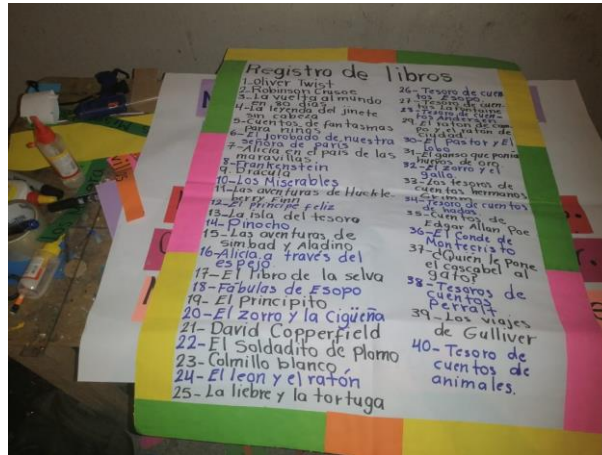 Registro de libros
1-Oliver Twist
2-Robinson Crusoe
3-La vuelta al mundo
en 80 dias
4-La leyenda del jinete
sin cabeza
5-Cuentos de fantasmas
para niños
6-El jorobado de nuestra
señora de paris
7-Alicia en el pais de las
maravillas
8-Frankenstein
9.Dracula
10-Los Miserables
11-Las aventuras de Huckle-
berry Finn
12-El Principe Feliz
13-La isla del tesoro
14-Pinocho
15-Las aventuras de
Simbad y Aladino
16-Alicia a través del
espejo
17-El libro de la selva
18-Fabulas de Esopo
19-El Principito
20-El zorro y la Cigüeña
21-David Copperfield
22-El Soldadito de plomo
23-Colmillo blanco
24-El leon y el ratón
25-La liebre y la tortuga
26-Tesoro de cuen
tos Esopo.
27-Tesoro de cuen
tos La Fontaine
Tesoro de cuen-
tos Andersen
29-El ratón de cam
po y el ratón de
ciudad
30-El pastor y El
lobo
31-El ganso que ponia
huevos de oro
32-El zorro y el
gallo
33-Los tesoros de
cuentos hermanos
Grimm
34-Tesoro de cuentos
de hadas
35-Cuentos de
Edgar Allan Poe
36-El Conde de
Montecristo
37-¿Quien le pone
el cascabel al
gato?
38-Tesoros de
cuentos
Perralt
39-Los viajes
de Gulliver
40-Tesoro de
cuentos de
animales.